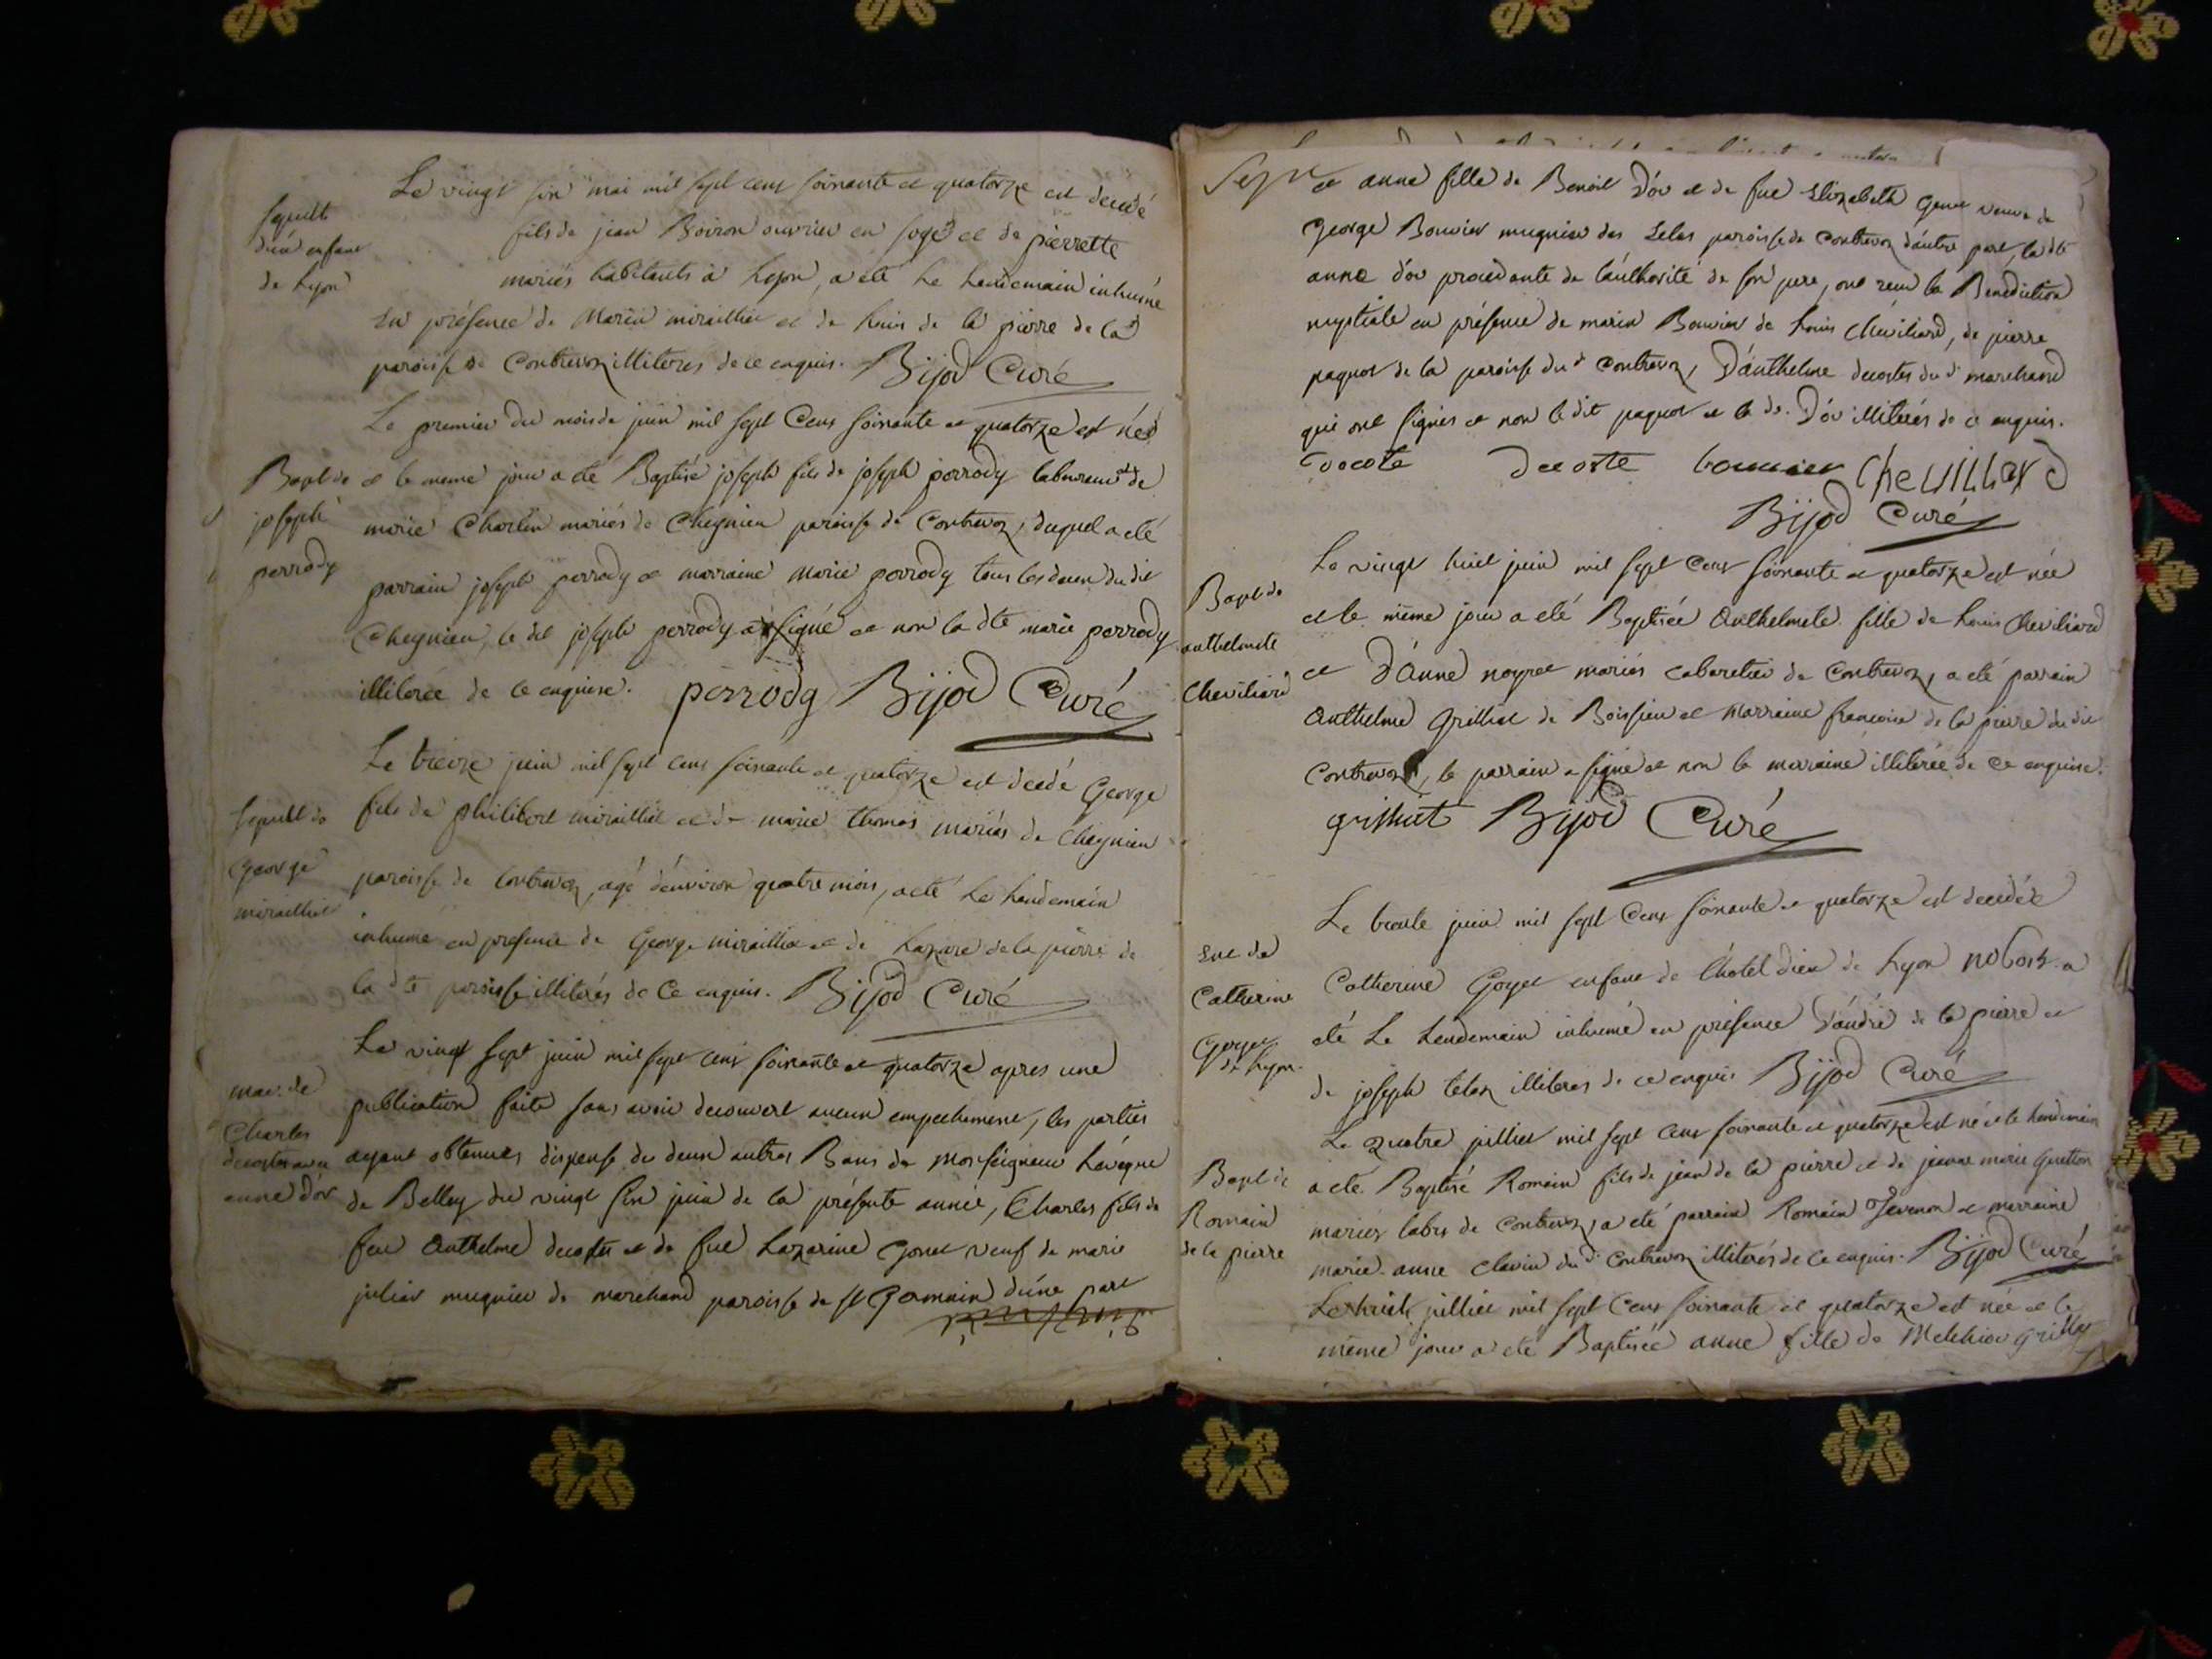 Le vingt six mai mil sept cens soixante et quatorze est decedé
sepult
d'un enfant
de Lyon
fils de jean Boiron ouvrier en soye et de pierrette
mariés habitants à Lyon, a eté Le Lendemain inhumé
en présence de Marin miraillier et de Louis de la pierre de la
paroisse de Contrevoz illiterés de ce enquis. Bijod Curé
Le premier du mois de juin mil sept Cens soixante et quatorze est né
Bapt de
joseph
perrody
et le meme jour a eté Baptisé joseph fils de joseph perrody laboureur et de
marie Charlin mariés de Cheynieu paroisse de Contrevoz, duquel a eté
parrain joseph perrody et marraine Marie perrody tous les deux du dit
Cheynieu, le dit joseph perrody a signé et non la dte marie perrody
illiterée de ce enquise. perrody Bijod Curé
Le treize juin mil sept cens soixante et quatorze est decedé George
sepult de
George
miraillier
fils de philibert miraillier et de marie thomas mariés de Cheynieu
paroisse de Contrevoz, agé d'environ quatre mois, a eté Le Lendemain
inhumé en presence de George miraillier et de Lazare de la pierre de
la dte paroisse illiterés de Ce enquis. Bijod Curé
Le vingt sept juin mil sept cens soixante et quatorze apres une
mar. de
Charles
decostes avec
anne d'ov
publication faite sans avoir decouvert aucun empechement, les parties
ayant obtenues dispense de deux autres Bans de Monseigneur L'évêque
de Belley du vingt six juin de la présente année, Charles fils de
feu Anthelme decostes et de fue Lazarine Gonet veuf de marie
julian mugnier de marchand paroisse de St Germain d'une part
et anne fille de Benoit D'ov et de fue Elizabeth veuve de
George Bouvier mugnier des paroisse de Contrevoz d'autre part, la dte
anne d'ov procedante de l'authorité de son pere, ont reçu la Benediction
nuptiale en présence de marin Bouvier de Louis Chevilliard, de pierre
paquot de la paroisse du dt Contrevoz, D'anthelme decostes du dt marchand
qui ont signés et non le dit paquot et le dt. D'ov illiterés de ce enquis.
decoste bouvier Chevillard
Bijod Curé
Le vingt huit juin mil sept Cens soixante et quatorze est née
Bapt de
anthelmete
Chevilliard
et le même jour a eté Baptisée Anthelmete fille de Louis Chevilliard
et D'anne noyret mariés cabaretier de Contrevoz, a eté parrain
Anthelme Grilliet de Boissieu et Marraine francoise de la pierre du dit
Contrevoz, le parrain a signé et non la marraine illiterée de ce enquise.
grilliet Bijod Curé
Le trente juin mil sept Cens soixante et quatorze est decedée
Catherine
Goyet
de Lyon
Catherine Goyet enfant de l'hotel dieu de Lyon a
eté Le Lendemain inhumé en présence D'andré de la pierre et
de joseph illiteres de ce enquis Bijod Curé
Le quatre juilliet mil sept Cens soixante et quatorze est né et le Lendemain
Bapt de
Romain
de la pierre
a eté Baptisé Romain fils de jean de la pierre et de jeanne marie
mariés labrs de Contrevoz, a eté parrain Romain Jevenon et marraine
marie anne clavin du dt Contrevoz illiterés de Ce enquis. Bijod Curé
Le huit juilliet mil sept Cens soixante et quatorze est née et le
même jour a eté Baptisée anne fille de Melchior grilliet